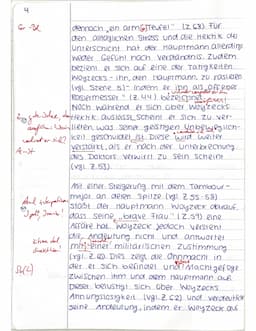 4
dennoch „ein arm[er] Teufel" (Z. 63). Für
den alltäglichen Stress und die Hektik als
Unterschicht hat der Hauptmann allerdings
weder Gefühl noch Verständnis. Zudem
bezieht er sich auf eine der Tätigkeiten
Woyzecks - ihn, den Hauptmann, zu rasieren
(vgl. Szene 5) - indem er ihn als „offenes
Rasiermesser" (Z. 44) bezeichnet.
Noch während er sich über Woyzecks
Hektik auslässt, scheint er sich zu ver-
lieren, was seiner geistigen Unbeweglich-
keit geschuldet ist. Diese wird weiter
verstärkt, als er nach der Unterbrechung
des Doktors verwirrt zu sein scheint
(vgl. Z. 53).
Mit einer Steigerung, mit dem Tambour-
major an deren Spitze (vgl. Z. 55-58)
stößt der Hauptmann Woyzeck darauf,
dass seine „brave Frau" (Z. 57) eine
Affäre hat. Woyzeck jedoch versteht
die Andeutung nicht und antwortet
mit einer militärischen Zustimmung
(vgl. Z. 61). Dies zeigt die Ohnmacht in
der er sich befindet und Machtgefolge
zwischen ihm und dem Hauptmann auf.
Dieser belustigt sich über Woyzecks
Ahnungslosigkeit (vgl. Z. 62) und verdeutlicht
seine Andeutung, indem er Woyzeck auf